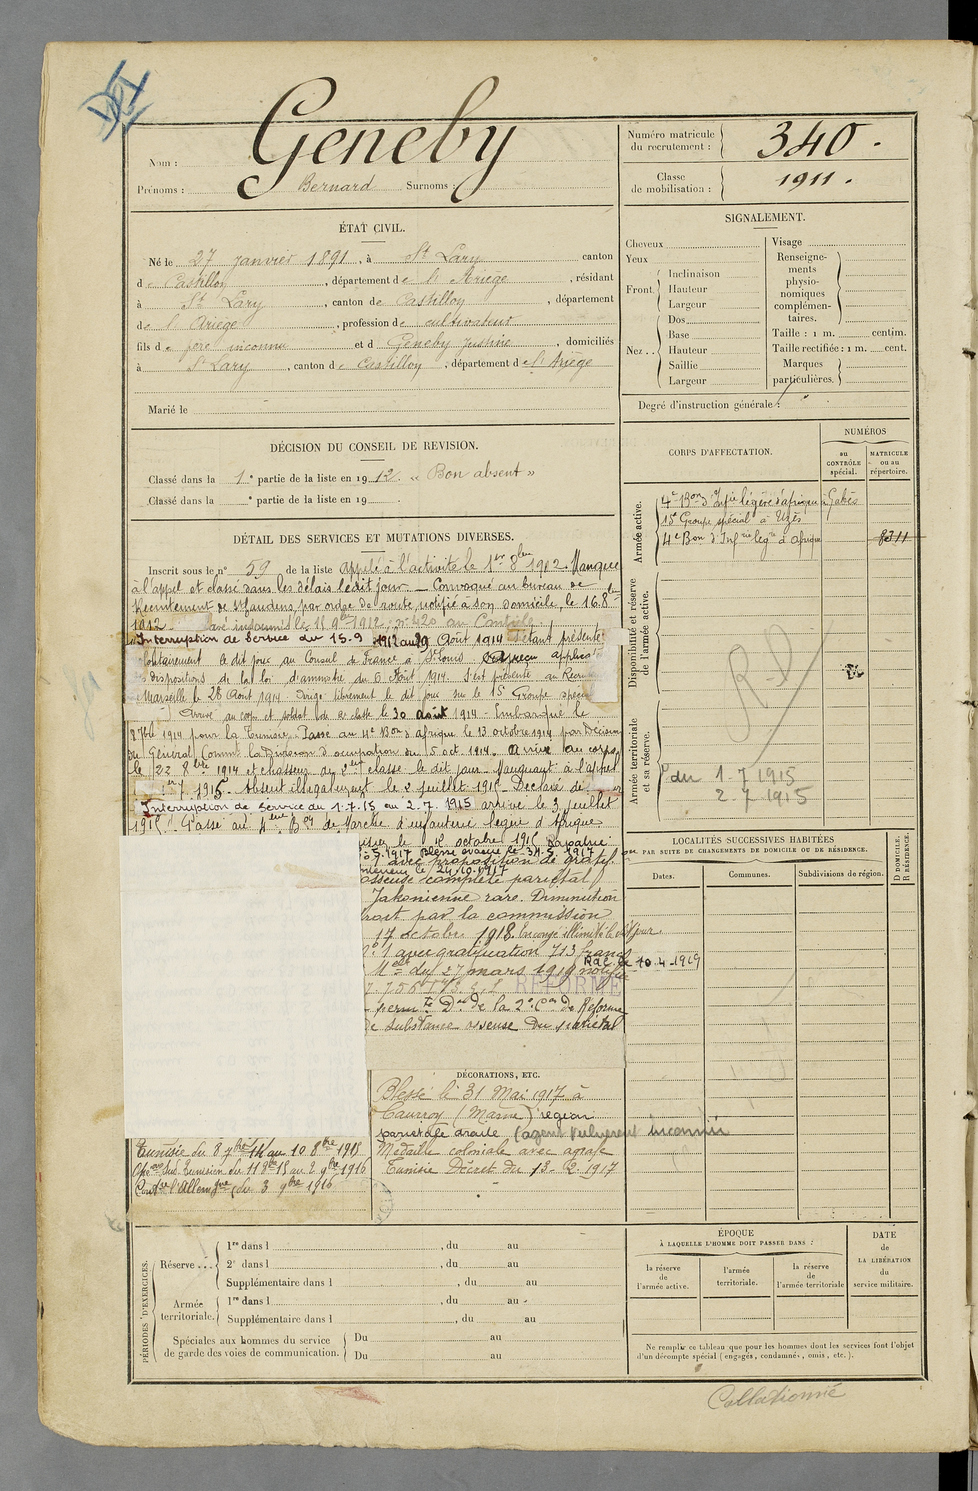 Geneby
Nom :
Prénoms : Bernard Surnoms :
Numéro matricule du recrutement : 340.
Classe de mobilisation : 1911.
ÉTAT CIVIL.
Né le 27 janvier 1891, à St Lary canton
de Castillon, département de l'Ariège, résidant
à St Lary, canton de Castillon, département
de l'Ariège, profession de cultivateur
fils de père inconnu et de Geneby Justine, domiciliés
à St Lary, canton de Castillon, département de l'Ariège
Marié le
SIGNALEMENT.
Cheveux
Yeux
Front. Inclinaison
Hauteur
Largeur
Nez.. Dos
Base
Hauteur
Saillie
Largeur
Visage
Renseignements physionomiques complémentaires.
Taille : 1 m. centim.
Taille rectifiée : 1 m. cent.
Marques particulières.
Degré d'instruction générale :
DÉCISION DU CONSEIL DE REVISION.
Classé dans la 1e partie de la liste en 1912. « Bon absent »
Classé dans la e partie de la liste en 19 .
DÉTAIL DES SERVICES ET MUTATIONS DIVERSES.
Inscrit sous le n° 59 de la liste appelé à l'activité le 1er 8bre 1912. Manque
à l'appel et classé dans les délais le dit jour. Convoqué au bureau de
Recrutement de St Gaudens par ordre de route notifié à son domicile le 16.8bre
1912
Interruption de Service du 15.9 1912 au 19 Août 1914 s'étant présenté
volontairement le dit jour au Consul de France à St Louis applicat
dispositions de la loi d'amnistie du 5 Août 1914. S'est présenté au Recrut
Marseille le 28 Août 1914. Dirigé librement le dit jour sur le 15e Groupe spécial
Arrivé au corps et soldat de 2e classe le 30 août 1914 - Embarqué le
8 7bre 1914 pour la Tunisie. Passé au 4e Bon d'Afrique le 13 octobre 1914 par Décision
du Général Commt la Division d'occupation du 5 oct. 1914. Arrivé au corps
le 22 8bre 1914 et chasseur de 2ème classe le dit jour. Manquant à l'appel
1er 7. 1915. Absent illégalement le 2 juillet 1915. Déclaré dé
Interruption de service du 1.7.15 au 2.7.1915 arrivé le 3 juillet
1915. Passé au 4ème Bon de Marche d'infanterie légère d'Afrique
le 12 octobre 1915 Rapatrié
7.1917 Blessé évacué le 31.5.1917
avec proposition de gratif.
le 24.10.1917
osseuse complète pariétal
Jaksonienne rare. Diminution
droit par la commission
17 octobre 1918. En congé illimité le dit jour
1 avec gratification 713 francs
Mle du 27 mars 1919 notifié
RdC le 10.4.1919
RÉFORME
perm te Don de la 2e Con de Réforme
de substance osseuse du pariétal
Tunisie du 8 7bre 14 au 10 8bre 1915
Opons Sud Tunisien du 11 8bre 15 au 2 9bre 1916
Contre l'Allemgne du 3 9bre 1916
DÉCORATIONS, ETC.
Blessé le 31 Mai 1917 à
Cauroy (Marne) région
pariétale droite (agent vulnérant inconnu
Médaille coloniale avec agrafe
Tunisie Décret du 13. 2. 1917
CORPS D'AFFECTATION.
NUMÉROS
au CONTRÔLE spécial.
MATRICULE ou au répertoire.
Armée active.
4e Bon d'Infie légère d'afrique à Gabès
15e Groupe spécial à Uzès
4e Bon d'Infrie légère d'Afrique 8311
Disponibilité et réserve de l'armée active.
R-D
Armée territoriale et sa réserve.
du 1.7.1915
2.7.1915
LOCALITÉS SUCCESSIVES HABITÉES
PAR SUITE DE CHANGEMENTS DE DOMICILE OU DE RÉSIDENCE.
Dates. Communes. Subdivisions de région. D DOMICILE. R RÉSIDENCE.
PÉRIODES D'EXERCICES.
Réserve... 1re dans l , du au
2e dans l , du au
Supplémentaire dans l , du au
Armée territoriale. 1re dans l , du au
Supplémentaire dans l , du au
Spéciales aux hommes du service Du au
de garde des voies de communication. Du au
ÉPOQUE
À LAQUELLE L'HOMME DOIT PASSER DANS :
la réserve de l'armée active.
l'armée territoriale.
la réserve de l'armée territoriale
DATE de LA LIBÉRATION du service militaire.
Ne remplir ce tableau que pour les hommes dont les services font l'objet
d'un décompte spécial (engagés, condamnés, omis, etc.).
Collationné